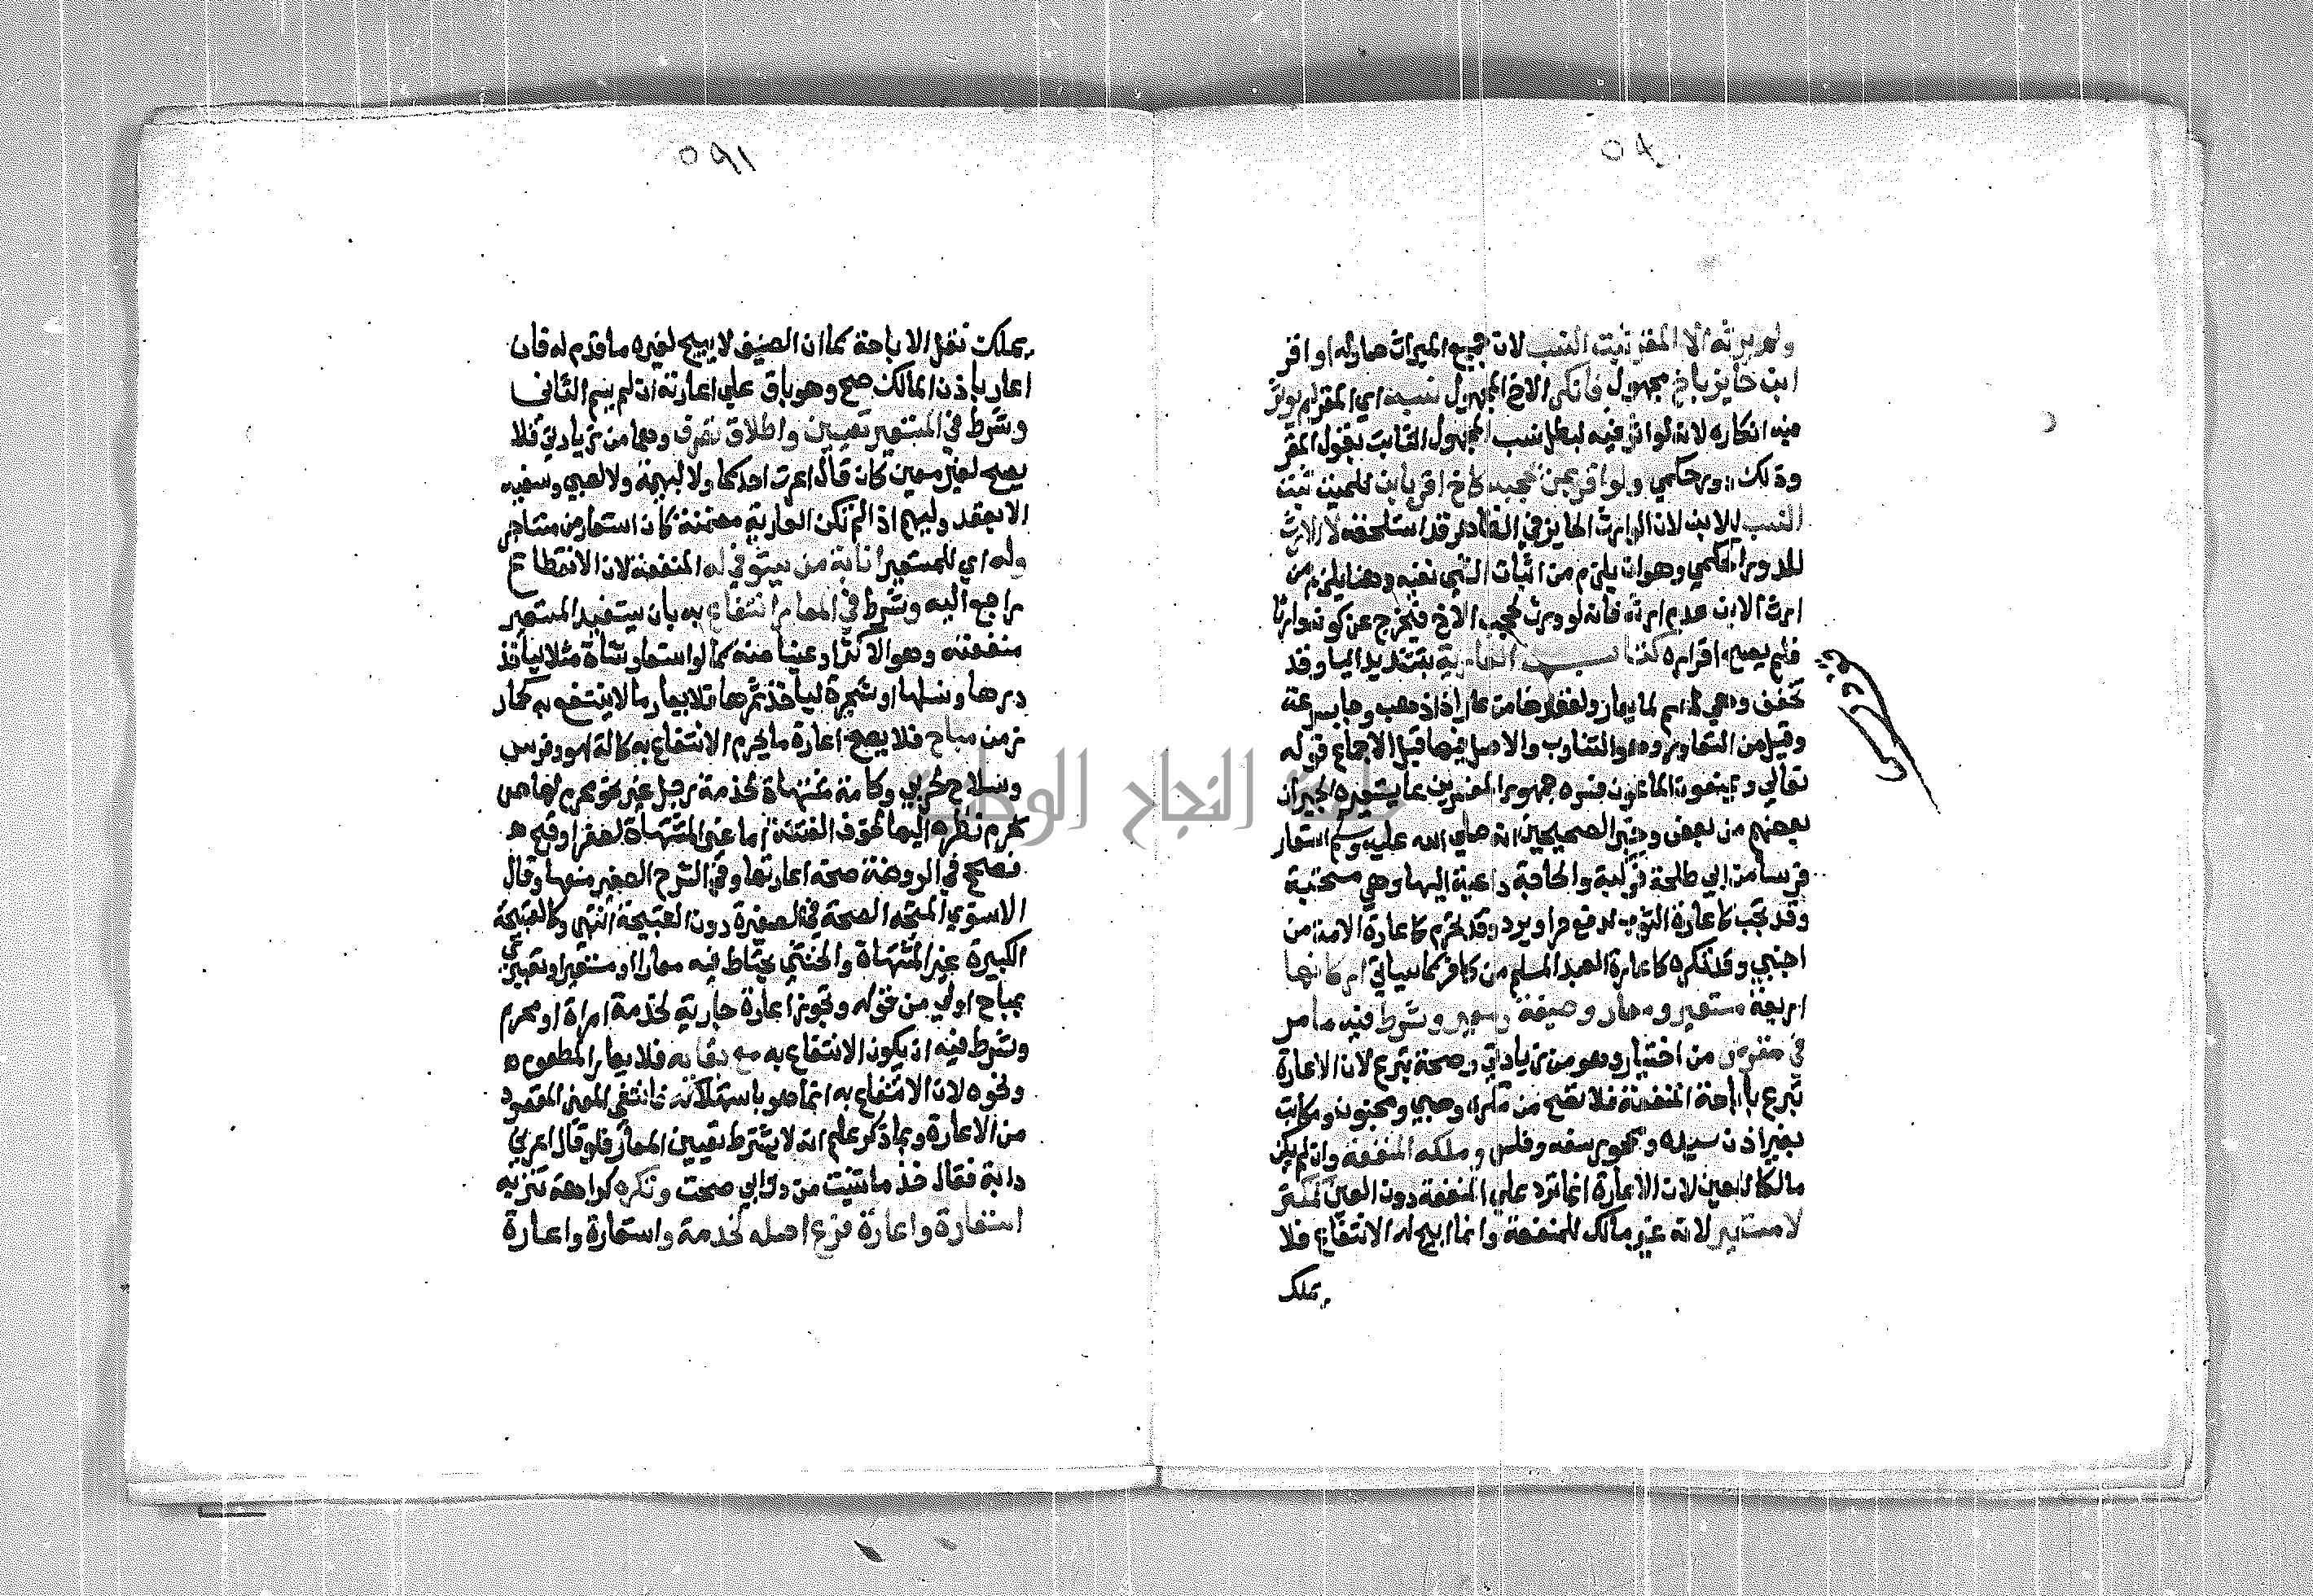 ولم يرثه الا المقر ثبت النسب لان جميع الميراث صار له او اقر
ابن حايز باخ مجهول فانكر الاخ المجهول نسبه اي المقر لم يوثر
فيه انكاره لانه لو اثر فيه لبطل نسب المجهول الثابت بقول المقر
وذلك دور حكمي ولو اقر بمن يحجبه كاخ اقر بابن للميت ثبت
النسب للابن لان الوارث الحايز في الظاهر قد استلحقه لا الارث
للدور الحكمي وهو ان يلزم من اثبات الشي نفيه وهنا يلزم من
ارث الابن عدم ارثه فانه لو ورث لحجب الاخ فيخرج عن كونه وارثا
فلم يصح اقراره كتاب العارية بتشديد اليا وقد
تخفف وهي اسم لما يعار ولعقدها من عار اذا ذهب وجا بسرعة
وقيل من التعاور وهو التناوب والاصل فيها قبل الاجماع قوله
تعالي ويمنعون الماعون فسره جمهور المفسرين بما يستعيره الجيران
بعضهم من بعض وخبر الصحيحين انه صلي الله عليه وسلم استعار
فرسا من ابي طلحة فركبه والحاجة داعية اليها وهي مستحبة
وقد تجب كاعارة الثوب لدفع حر او برد وقد تحرم كاعارة الامة من
اجنبي وقد تكره كاعارة العبد المسلم من كافر كما سياتي اركانها
اربعة مستعير ومعار وصيغة ومعير وشرط فيه ما مر
في مقرض من اختيار وهو من زيادتي وصحة تبرع لان الاعارة
تبرع باباحة المنفعة فلا تصح من مكره وصبي ومجنون ومكاتب
بغير اذن سيده ومحجور سفه وفلس وملكه المنفعة وان لم يكن
مالكا للعين لان الاعارة انما ترد علي المنفعة دون العين كمكتر
لا مستعير لانه غير مالك للمنفعة وانما ابيح له الانتفاع فلا
يملك
كتاب العارية
٥٩١
يملك نقل الاباحة كما ان الضيف لا يبيح لغيره ما قدم له فان
اعار باذن المالك صح وهو باق علي اعارته ان لم يسم الثاني
وشرط في المستعير تعيين واطلاق تصرف وهما من زيادتي فلا
يصح لغير معين كان قال اعرت احدكما ولا لبهيمة ولا لصبي وسفيه
الا بعقد وليهم اذا لم تكن العارية مضمنة كان استعار من مستاجر
وله اي للمستعير انابة من يستوفي له المنفعة لان الانتفاع
راجع اليه وشرط في المعار انتفاع به بان يستفيد المستعير
منفعته وهو الاكثر او عينا منه كما لو استعار شاة مثلا لياخذ
درها ونسلها او شجرة لياخذ ثمرها فلا يعار ما لا ينتفع به كحمار
زمن مباح فلا يصح اعارة ما يحرم الانتفاع به كالة لهو وفرس
وسلاح لحربي وكامة مشتهاة لخدمة رجل غير نحو محرم لها ممن
يحرم نظره اليها لخوف الفتنة اما غير المشتهاة لصغر او قبح
فصحح في الروضة صحة اعارتها وفي الشرح الصغير منعها وقال
الاسنوي المتجه الصحة في الصغيرة دون القبيحة انتهي وكالقبيحة
الكبيرة غير المشتهاة والخنثي يحتاط فيه معارا او مستعيرا وتعبيري
بمباح اولي من قوله وتجوز اعارة جارية لخدمة امراة او محرم
وشرط فيه ان يكون الانتفاع به مع بقايه فلا يعار المطعوم
ونحوه لان الانتفاع به انما هو باستهلاكه فانتفي المعني المقصود
من الاعارة وبما ذكر علم انه لا يشترط تعيين المعار فلو قال اعرني
دابة فقال خذ ما شيت من دوابي صحت وتكره كراهة تنزيه
استعارة واعارة فرع اصله لخدمة واستعارة واعارة
جامعة النجاح الوطنية